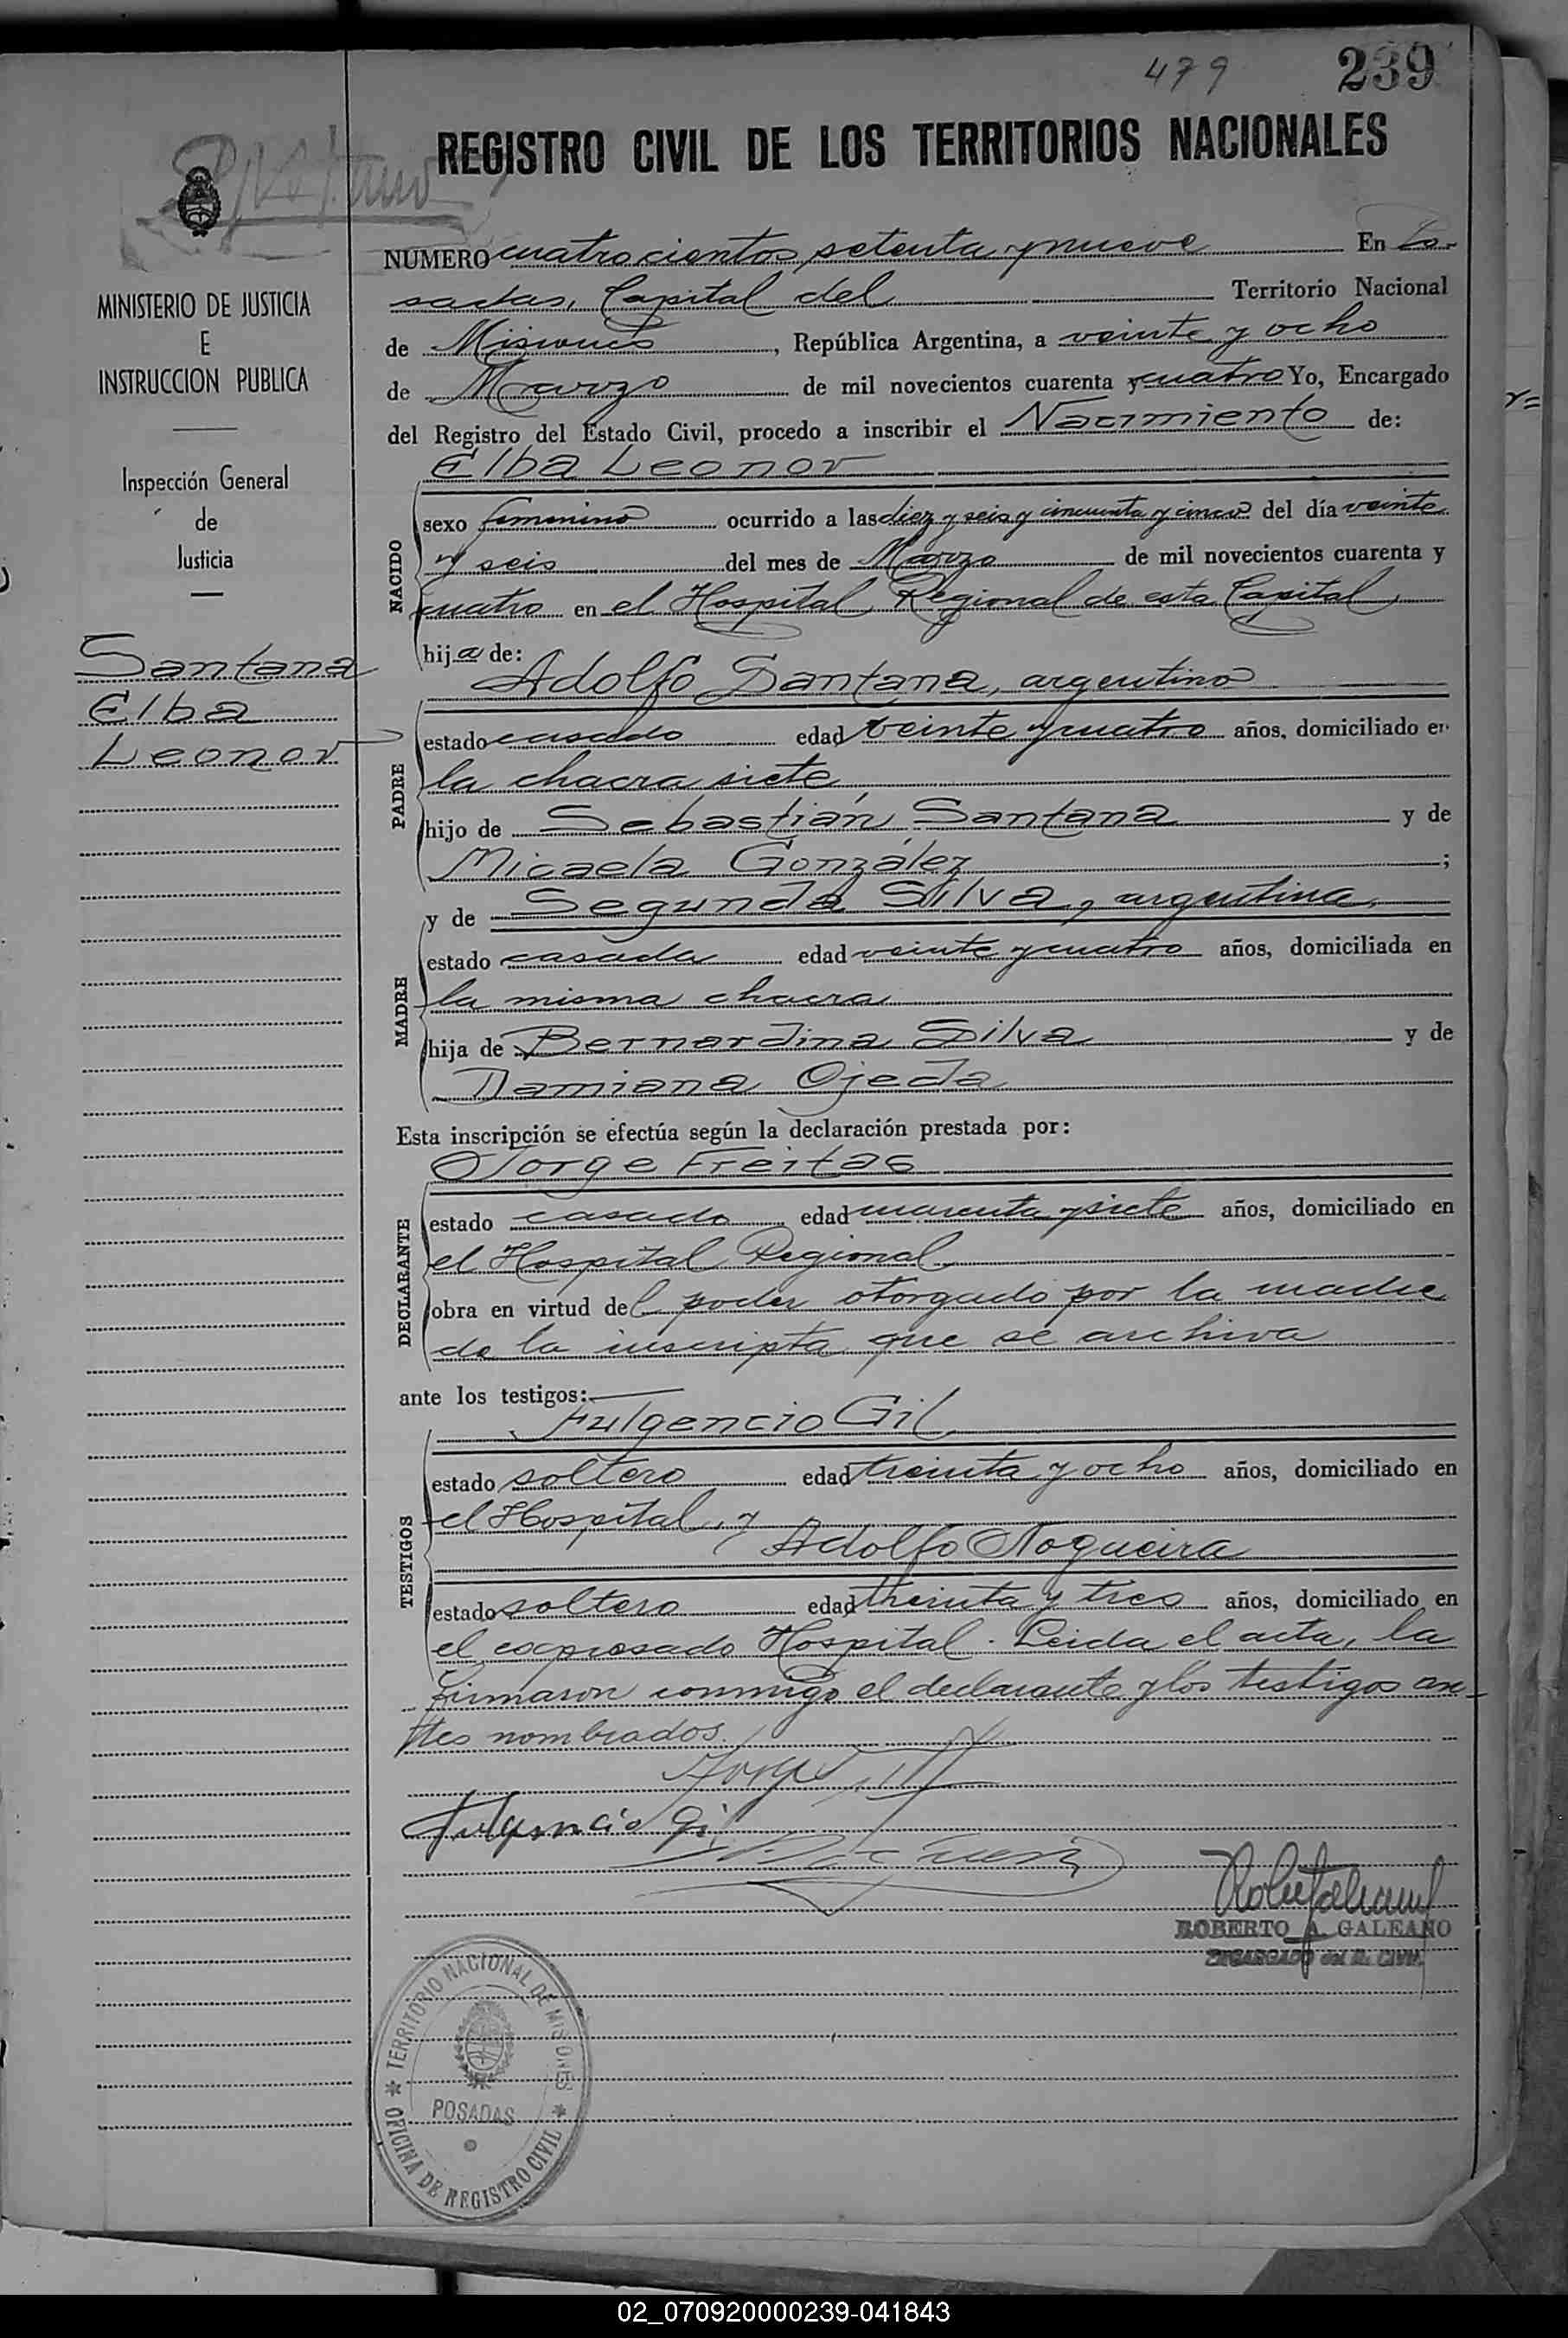 479 239
REGISTRO CIVIL DE LOS TERRITORIOS NACIONALES
MINISTERIO DE JUSTICIA
E
INSTRUCCION PUBLICA
Inspección General
de
Justicia
Santana
Elba
Leonor
NUMERO cuatrocientos setenta y nueve En Po-
sadas, Capital del Territorio Nacional
de Misiones, República Argentina, a veinte y ocho
de Marzo de mil novecientos cuarenta y cuatro Yo, Encargado
del Registro del Estado Civil, procedo a inscribir el Nacimiento de:
Elba Leonor
NACIDO
sexo femenino ocurrido a las diez y seis y cincuenta y cinco del día veinte
y seis del mes de Marzo de mil novecientos cuarenta y
cuatro en el Hospital Regional de esta Capital
hija de:
Adolfo Santana, argentino
PADRE
estado casado edad veinte y cuatro años, domiciliado en
la chacra siete
hijo de Sebastián Santana y de
Micaela González ;
y de Segunda Silva, argentina,
MADRE
estado casada edad veinte y cuatro años, domiciliada en
la misma chacra
hija de Bernardina Silva y de
Damiana Ojeda
Esta inscripción se efectúa según la declaración prestada por:
Jorge Freitas
DECLARANTE
estado casado edad cuarenta y siete años, domiciliado en
el Hospital Regional
obra en virtud del poder otorgado por la madre
de la inscripta que se archiva
ante los testigos:
Fulgencio Gil
TESTIGOS
estado soltero edad treinta y ocho años, domiciliado en
el Hospital, y
Adolfo Nogueira
estado soltero edad treinta y tres años, domiciliado en
el expresado Hospital. Leida el acta, la
firmaron conmigo el declarante y los testigos an-
tes nombrados.
Jorge
Fulgencio Gil
ROBERTO A. GALEANO
ENCARGADO del R. CIVIL
TERRITORIO NACIONAL DE MISIONES
POSADAS
OFICINA DE REGISTRO CIVIL
02_070920000239-041843